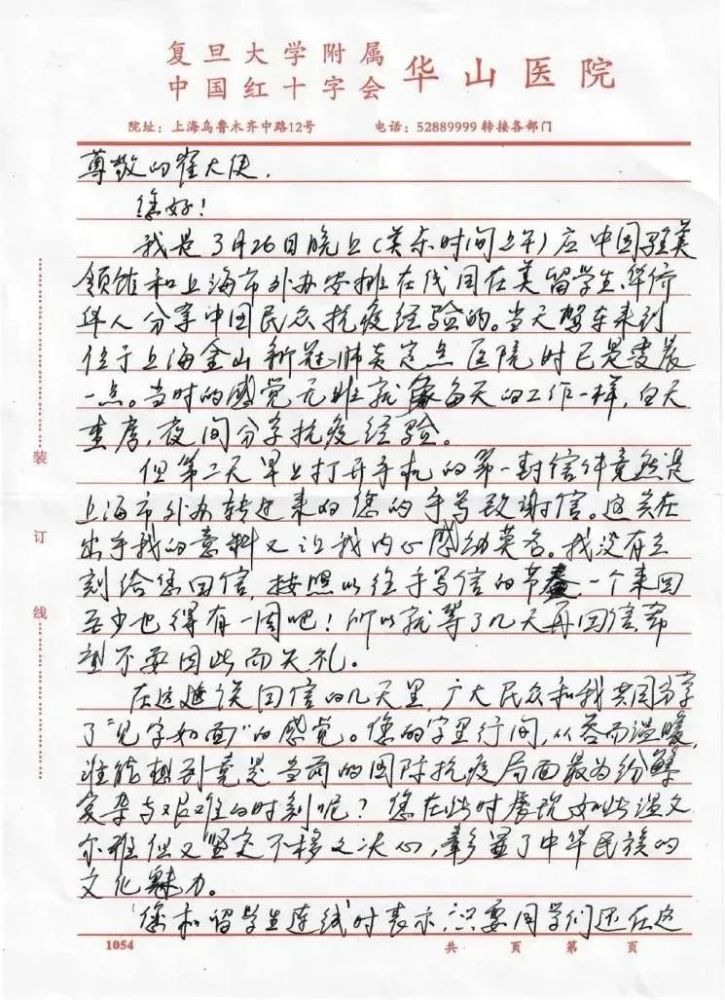 复旦大学附属
中国红十字会 华山医院
院址：上海乌鲁木齐中路12号 电话：52889999转接各部门
尊敬的崔大使，
您好！
我是3月26日晚上（美东时间上午）应中国驻美
领馆和上海市外办安排在线同在美留学生、华侨
华人分享中国民众抗疫经验的。当天驾车来到
位于上海金山新冠肺炎定点医院时已是凌晨
一点。当时的感觉无非就像每天的工作一样，白天
查房，夜间分享抗疫经验。
但第二天早上打开手机的第一封信件竟然是
上海市外办转过来的您的手写致谢信。这实在
出乎我的意料又让我内心感动莫名。我没有立
刻给您回信，按照以往手写信的节奏，一个来回
至少也得有一周吧！所以就等了几天再回信希
望不要因此而失礼。
在这延误回信的几天里，广大民众和我共同分享
了“见字如面”的感觉。您的字里行间，从容而温暖，
谁能想到竟是当前的国际抗疫局面最为纷繁
复杂与艰难的时刻呢？您在此时展现如此温文
尔雅但又坚定不移之决心，彰显了中华民族的
文化魅力。
您和留学生连线时表示，只要同学们还在这
装
订
线
1054 共 页 第 页